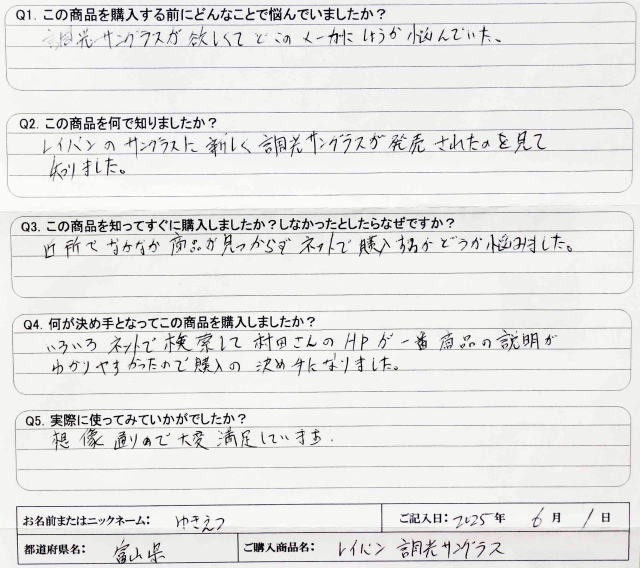 Q1. この商品を購入する前にどんなことで悩んでいましたか?
調光サングラスが欲しくてどこのメーカにしようか悩んでいた。
Q2. この商品を何で知りましたか?
レイバンのサングラスに新しく調光サングラスが発売されたのを見て
知りました。
Q3. この商品を知ってすぐに購入しましたか?しなかったとしたらなぜですか?
近所でなかなか商品が見つからずネットで購入するかどうか悩みました。
Q4. 何が決め手となってこの商品を購入しましたか?
いろいろネットで検索して村田さんのHPが一番商品の説明が
わかりやすかったので購入の決め手になりました。
Q5. 実際に使ってみていかがでしたか?
想像通りので大変満足しています.
お名前またはニックネーム: ゆきえつ ご記入日: 2025年 6月 1日
都道府県名: 富山県 ご購入商品名: レイバン 調光サングラス